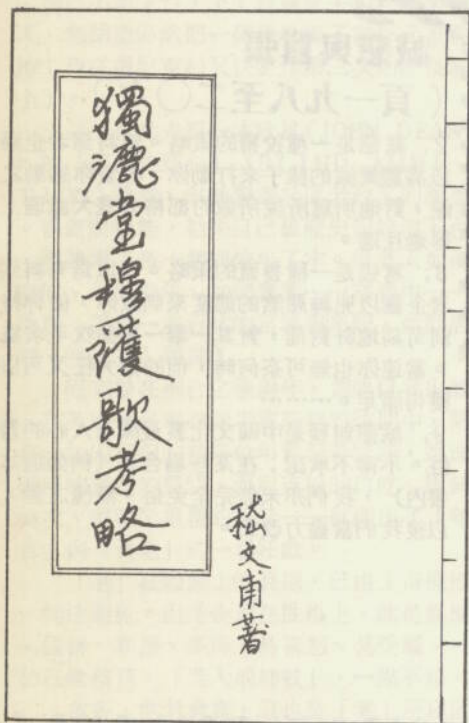 獨漉堂穆護歌考略
嵇文甫著